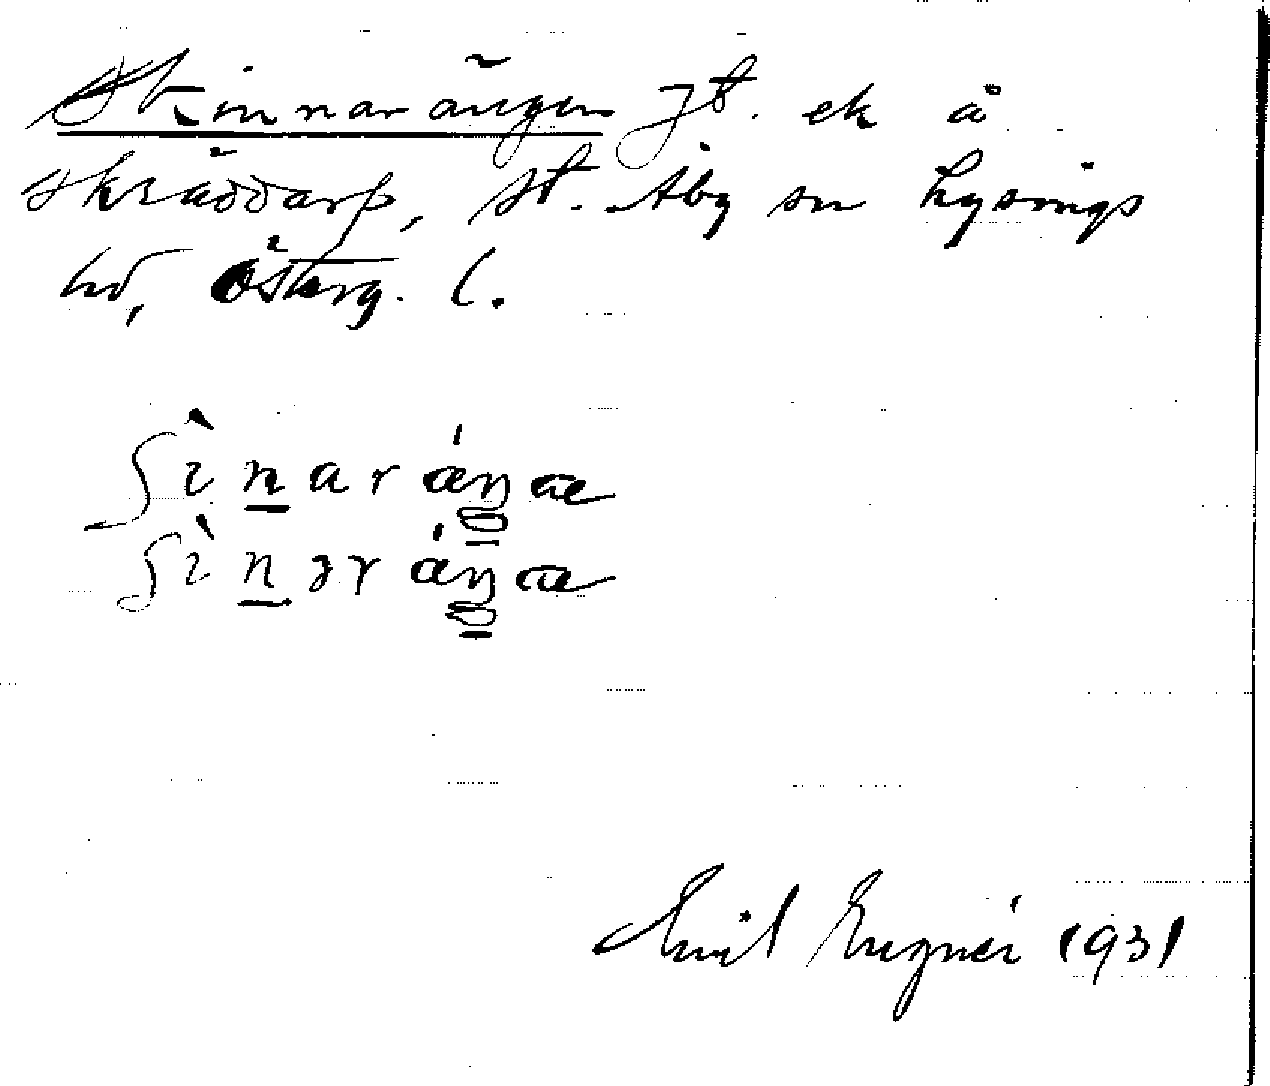 Skinnarängen jt. ek å
skräddarp, st. Åby sn Lysings
hd, Österg. l.
ʃìnaráŋæ
ʃìnɜráŋæ
Emil Engnér 1931